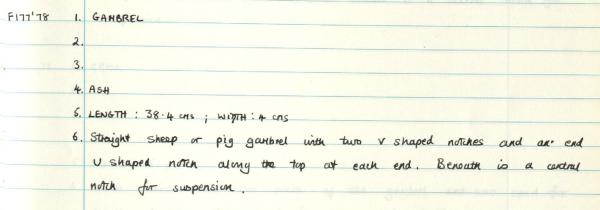 F177'78 1. GAMBREL
2.
3.
4. ASH
5. LENGTH : 38.4 cms ; WIDTH : 4 cms
6. Straight sheep or pig gambrel with two V shaped notches and an end
U shaped notch along the top at each end. Beneath is a central
notch for suspension.